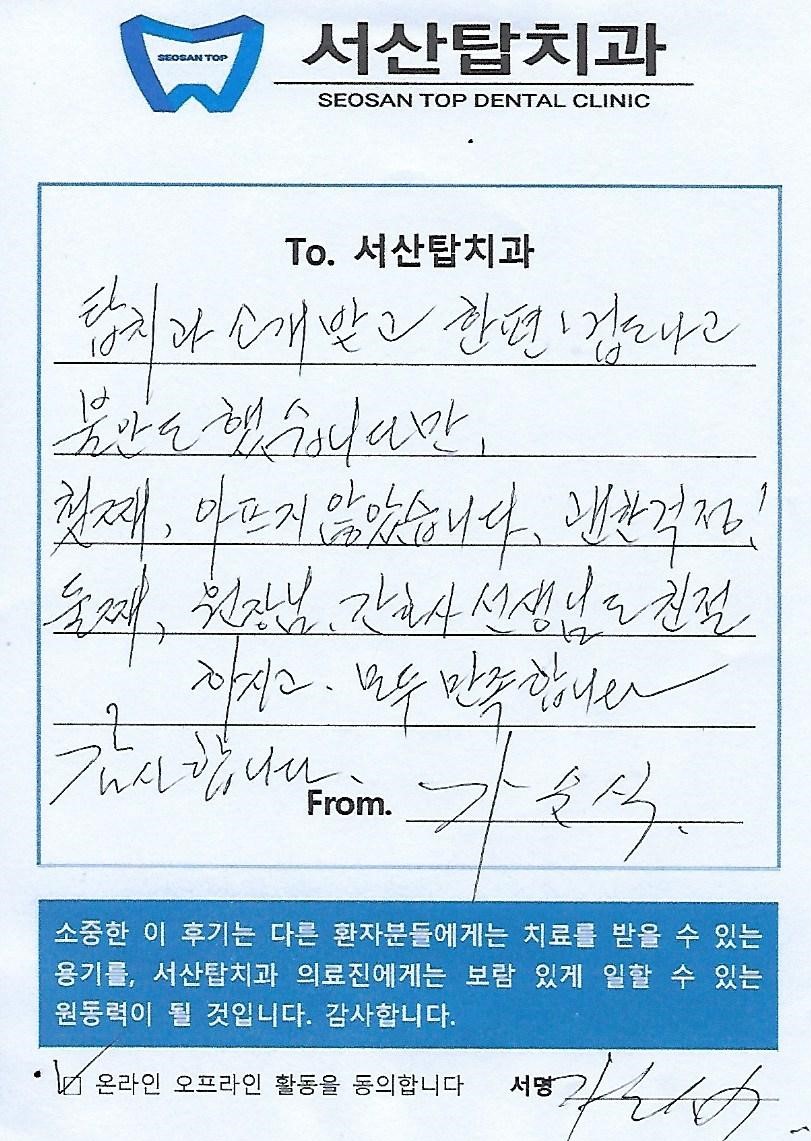 SEOSAN TOP
서산탑치과
SEOSAN TOP DENTAL CLINIC
To. 서산탑치과
탑치과 소개받고 한편, 겁도나고
불안도 했습니다만,
첫째, 아프지 않았습니다. 괜한걱정!
둘째, 원장님, 간호사 선생님도 친절
하시고. 모두 만족합니다
감사합니다.
From. 가순식.
소중한 이 후기는 다른 환자분들에게는 치료를 받을 수 있는
용기를, 서산탑치과 의료진에게는 보람 있게 일할 수 있는
원동력이 될 것입니다. 감사합니다.
온라인 오프라인 활동을 동의합니다 서명